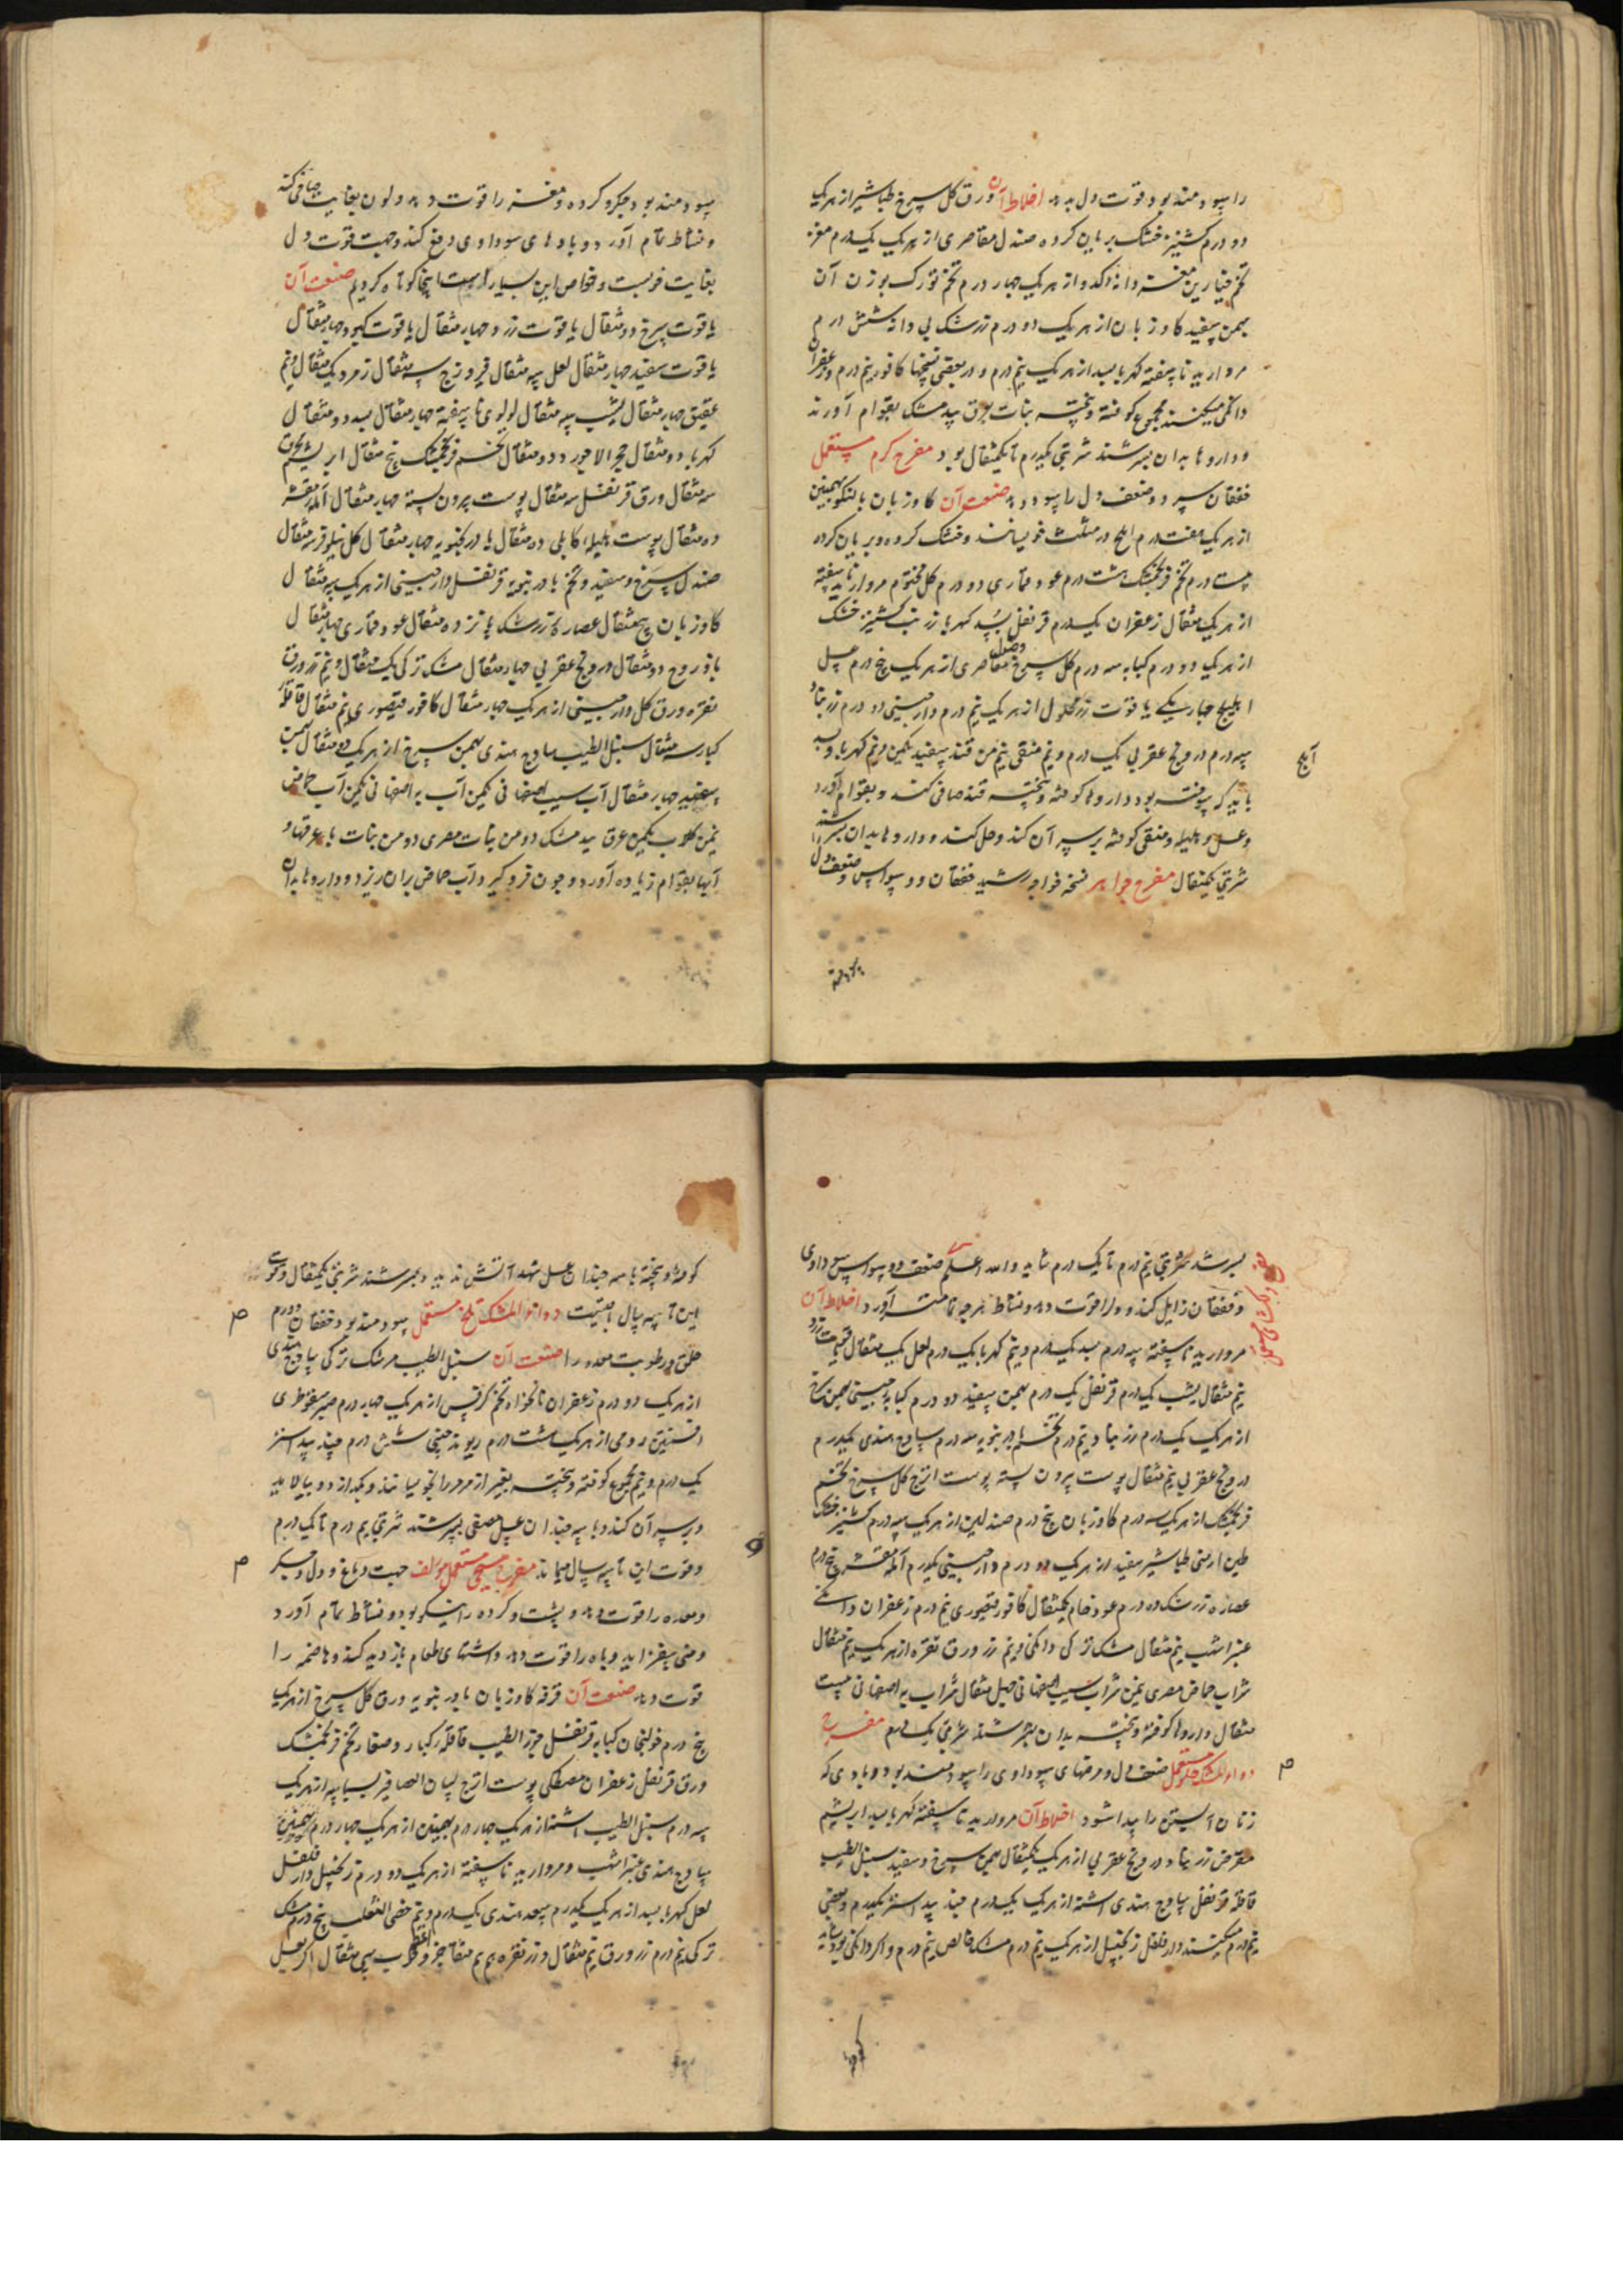 را سودمند بود و قوت دل بدهد اخلاط آن ورق گل سرخ طباشیر از هر یک
دو درم کشنیز خشک بریان کرده صندل مقاصری از هر یک یکدرم مغز
تخم خیارین مغز دانه کدو از هر یک چهار درم تخم تورک بوزن آن
بهمن سفید کاوزبان از هر یک دو درم زرشک بی دانه شش درم
مروارید ناسفته کهربا بسد از هر یک نیم درم و در بعضی نسخها کافور نیم درم و زعفران
دانکی میکنند مجموع کوفته و بیخته بنبات بعرق بیدمشک بقوام آورند
و داروها بدان بسرشند شربتی یکدرم تا یکمثقال بود مفرح گرم مستعمل
خفقان سرد و ضعف دل را سود دهد صنعت آن کاوزبان بالنکو بهمنین
از هر یک هفت درم املج در مثلث خویسانند و خشک کرده و بریان کرده
بیست درم تخم فرنجمشک هشت درم عود قماری دو درم گل مختوم مروارید ناسفته
از هر یک مثقال زعفران یکدرم قرنفل بسد کهربا زرنب کشنیز خشک
از هر یک دو درم کبابه سه درم گل سرخ وصندل مقاصری از هر یک پنج درم عسل
ابلیلج چهار یکی یاقوت زر محلول از هر یک نیم درم دارچینی دو درم زرنباد
سه درم درونج عقربی یک درم و نیم منقی نیم من قند سفید یکمن و نیم کهربا و بسد
آملج
باید که سوخته بود داروها کوفته و بیخته قند صافی کنند و بقوام آورد
و عسل و هلیله و منقی کوفته بر سر آن کند و حل کند و داروها بدان بسرشند
شربتی یکمثقال مفرح جواهر نسخه خواجه رشید خفقان و وسواس و ضعف دل را
سودمند بود و جکر و کرده و مغز را قوت دهد و لون بغایت صافی کند
و نشاط تمام آورد و بادهای سوداوی دفع کند و جهت قوت دل
بغایت خوبست و خواص این بسیار است اینجا کوتاه کردیم صنعت آن
یاقوت سرخ دو مثقال یاقوت زرد چهار مثقال یاقوت کبود چهار مثقال
یاقوت سفید چهار مثقال لعل سه مثقال فیروزج سه مثقال زمرد یک مثقال و نیم
عقیق چهار مثقال یشب سه مثقال لولوی ناسفته چهار مثقال بسد دو مثقال
کهربا دو مثقال حجر لاجورد دو مثقال تخم فرنجمشک پنج مثقال ابریشم
سه مثقال ورق قرنفل سه مثقال پوست برون پسته چهار مثقال آمله مقشر
ده مثقال پوست هلیله کابلی ده مثقال بادرنجبویه چهار مثقال گل نیلوفر سه مثقال
صندل سرخ و سفید و تخم بادرنجبویه قرنفل دارچینی از هر یک سه مثقال
کاوزبان پنجمثقال عصاره زرشک پانزده مثقال عود قماری چهار مثقال
بادروج دو مثقال درونج عقربی چهار مثقال مشک ترکی یک مثقال و نیم زرورق
نقره ورق گل دارچینی از هر یک چهار مثقال کافور قیصوری نیم مثقال قاقله
کبار سه مثقال سنبل الطیب ساذج هندی بهمن سرخ از هر یک دو مثقال بهمن
سفید چهار مثقال آب سیب اصفهانی یکمن آب به اصفهانی یکمن آب حماض
نیمن گلاب یکمن عرق بیدمشک دو من نبات مصری دو من نبات با عرقها و
آبها بقوام زیاده آورد و چون فرو گیرد آب حماض بران ریزد و داروها بدان
بسرشد شربتی نیم درم تا یک درم شاید والله اعلم ضعف دل و وسواس سوداوی
و خفقان زایل کند و دل را قوت دهد و نشاط هرچه تمامتر آورد اخلاط آن
مروارید ناسفته سه درم بسد یکدرم و نیم کهربا یک درم لعل یک مثقال یاقوت زرد
نیم مثقال یشب یکدرم قرنفل یک درم بهمن سفید دو درم کبابه چینی بهمن سرخ
از هر یک یکدرم زرنباد نیم درم تخم بادرنجبویه سه درم ساذج هندی یکدرم
درونج عقربی نیم مثقال پوست برون پسته پوست اترج گل سرخ تخم
فرنجمشک از هر یک سه درم کاوزبان پنج درم صندلین از هر یک سه درم کشنیز خشک
طین ارمنی طباشیر سفید از هر یک دو درم دارچینی یکدرم آمله مقشر پنج درم
عصاره زرشک ده درم عود خام یکمثقال کافور قیصوری نیم درم زعفران دانکی
عنبر اشهب نیم مثقال مشک ترکی دانکی و نیم زرورق نقره از هر یک نیم مثقال
شراب حماض مصری نیمن شراب سیب اصفهانی چهل مثقال شراب به اصفهانی بیست
مثقال داروها کوفته و بیخته بدان بسرشند شربتی یک درم مفرح
دواء المسک حلو مستعمل ضعف دل و مرضهای سوداوی را سودمند بود و بادی که
زنان آبستن را پیدا شود اخلاط آن مروارید ناسفته کهربا بسد ابریشم
مقرض زرنباد درونج عقربی از هر یک یکمثقال بهمن سرخ و سفید سنبل الطیب
قاقله قرنفل ساذج هندی اشنه از هر یک یکدرم جند بیدستر یکدرم و بعضی
نیم درم میکنند دارفلفل زنجبیل از هر یک نیم درم مشک خالص نیم درم و اکر دانکی بود شاید
کوفته و بیخته با سه چندان عسل شهد آتش ندیده بسرشند شربتی یکمثقال و قوت
این تا سه سال هست دواء المسک تلخ مستعمل سودمند بود خفقان و ورم
حلق و رطوبت معده را صنعت آن سنبل الطیب مر مشک ترکی ساذج هندی
از هر یک دو درم زعفران نانخواه تخم کرفس از هر یک چهار درم صبر سقوطری
افسنتین رومی از هر یک هشت درم ریوند چینی شش درم جند بیدستر
یک درم و نیم مجموع کوفته و بیخته بغیر از مر مر را بخویسانند و بکدازد و بپالاید
و بر سر آن کند و با سه چندان عسل مصفی بسرشند شربتی نیم درم تا یک درم
و قوت این تا سه سال میماند مفرح مسیحی مستعمل مؤلف جهت دماغ و دل و جکر
و معده را قوت دهد و پشت و کرده را نیکو بود و نشاط تمام آورد
و منی بیفزاید و باه را قوت دهد و اشتهای طعام بازدید کند و هاضمه را
قوت دهد صنعت آن قرفه کاوزبان بادرنجبویه ورق گل سرخ از هر یک
پنج درم خولنجان کبابه قرنفل جوز الطیب قاقله کبار و صغار تخم فرنجمشک
ورق قرنفل زعفران مصطکی پوست اترج لسان العصافیر بسباسه از هر یک
سه درم سنبل الطیب اشنه از هر یک چهار درم بهمنین از هر یک چهار درم
ساذج هندی عنبر اشهب و مروارید ناسفته از هر یک دو درم زنجبیل دارفلفل
لعل کهربا بسد از هر یک یکدرم سعد هندی یکدرم و نیم خصی الثعلب پنج درم مشک
ترکی نیم درم زرورق نیم مثقال و زر نقره هم نیم مثقال سی مثقال اکر